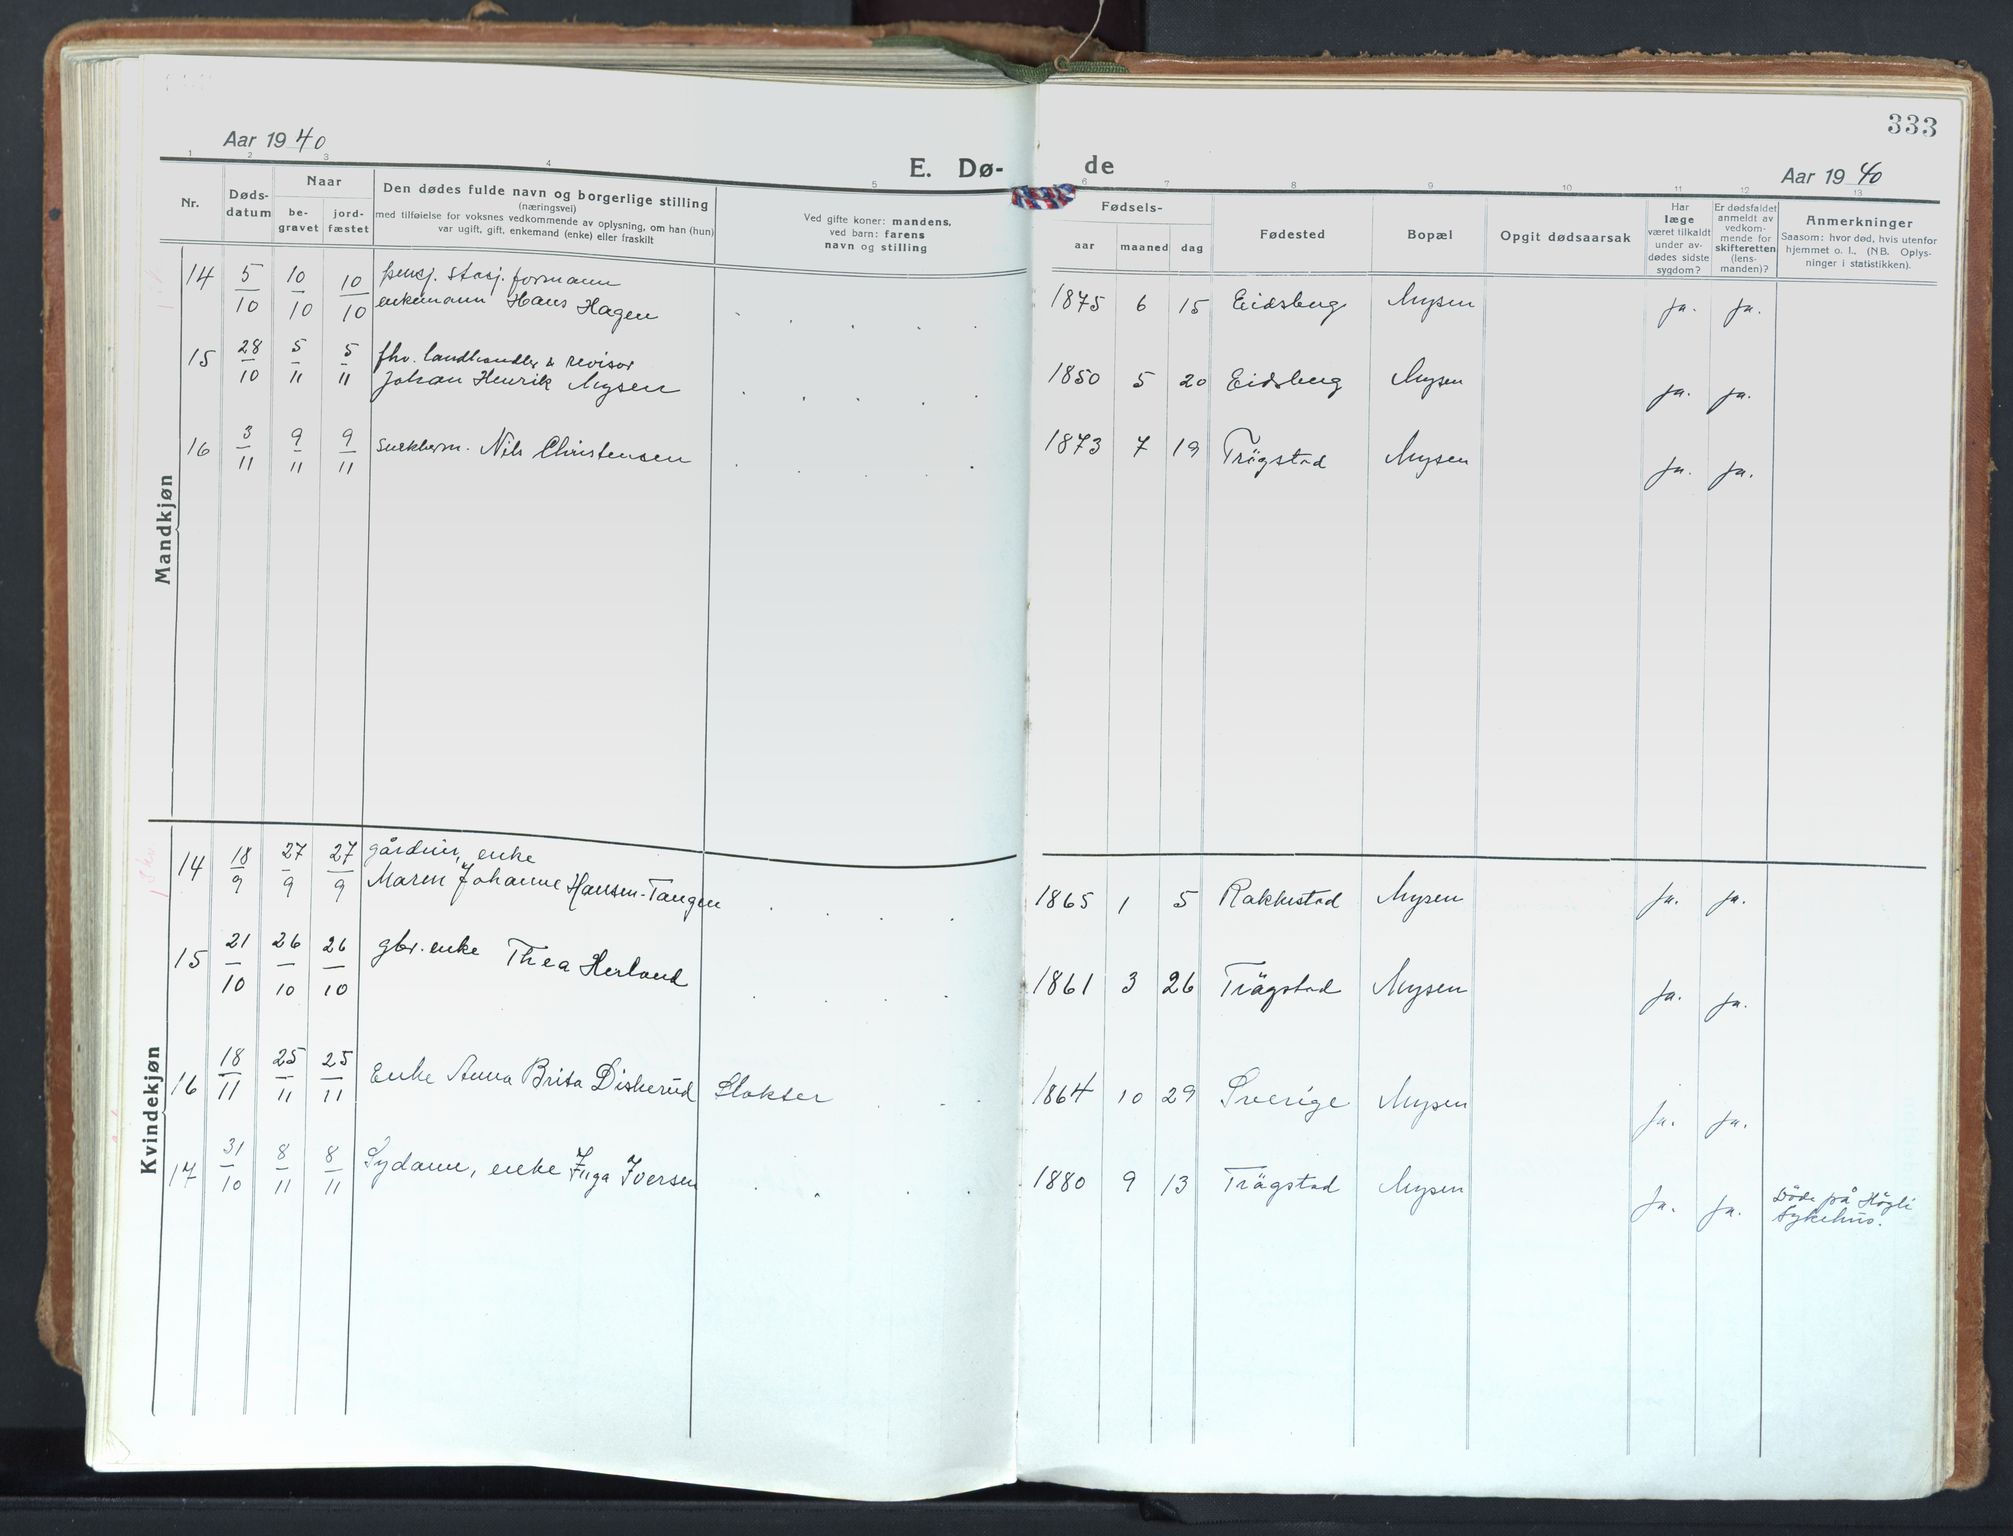 333
Aar 1940
E. Dø-
de
Aar 1940
1 2 3 4 5 6 7 8 9 10 11 12 13
Nr.
Døds-
datum
Naar
be-
gravet
jord-
fæstet
Den dødes fulde navn og borgerlige stilling
(næringsvei)
med tilføielse for voksnes vedkommende av oplysning, om han (hun)
var ugift, gift, enkemand (enke) eller fraskilt
Ved gifte koner: mandens,
ved barn: farens
navn og stilling
Fødsels-
aar
maaned
dag
Fødested
Bopæl
Opgit dødsaarsak
Har
læge
været tilkaldt
under av-
dødes sidste
sygdom?
Er dødsfaldet
anmeldt av
vedkom-
mende for
skifteretten
(lens-
manden)?
Anmerkninger
Saasom: hvor død, hvis utenfor
hjemmet o. l., (NB. Oplys-
ninger i statistikken).
Mandkjøn
14 5/10 10/10 10/10 pensj. stasj. formann
enkemann Hans Hagen 1875 6 15 Eidsberg Mysen ja. ja.
15 28/10 5/11 5/11 fhv. landhandler & revisor
Johan Henrik Mysen 1850 5 20 Eidsberg Mysen ja. ja.
16 3/11 9/11 9/11 snekkerm. Nils Christensen 1873 7 19 Trögstad Mysen ja. ja.
Kvindekjøn
14 18/9 27/9 27/9 gårdeier, enke
Maren Johanne Hansen-Tangen 1865 1 5 Rakkestad Mysen ja. ja.
15 21/10 26/10 26/10 gbr. enke Thea Herland 1861 3 26 Trögstad Mysen ja. ja.
16 18/11 25/11 25/11 Enke Anna Brita Diskerud Slakter 1864 10 29 Sverige Mysen ja. ja.
17 31/10 8/11 8/11 Sydame, enke Inga Iversen 1880 9 13 Trögstad Mysen ja. ja. Döde på Högli
Sykehus.